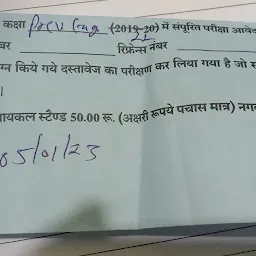 कक्षा Prev Eng (2019-20) में संपूरित परीक्षा आवेद
21-22
बर रिफ्रेन्स नंबर
ग्न किये गये दस्तावेज का परीक्षण कर लिया गया है जो स
।
ायकल स्टैण्ड 50.00 रू. (अक्षरी रूपये पचास मात्र) नगद
05/01/23